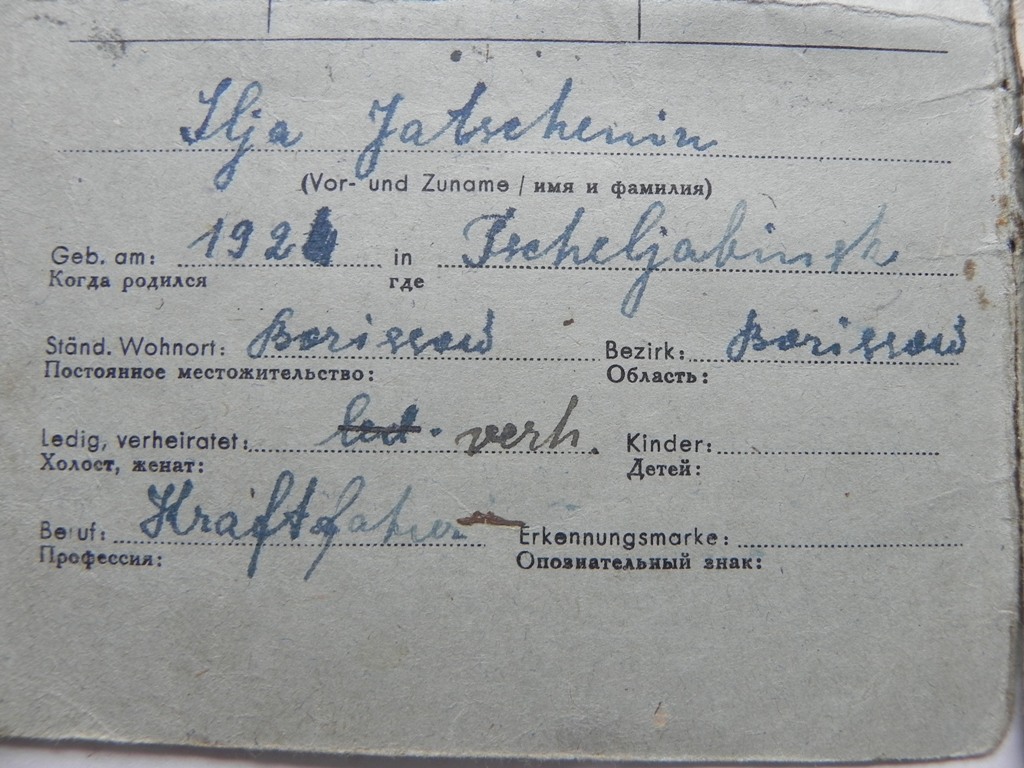 Ilja Jatschenin
(Vor- und Zuname / имя и фамилия)
Geb. am: 1924 in Tscheljabinsk
Когда родился где
Ständ. Wohnort: Borissow Bezirk: Borissow
Постоянное местожительство: Область:
Ledig, verheiratet: led. verh. Kinder:
Холост, женат: Детей:
Beruf: Kraftfahrer Erkennungsmarke:
Профессия: Опознательный знак: